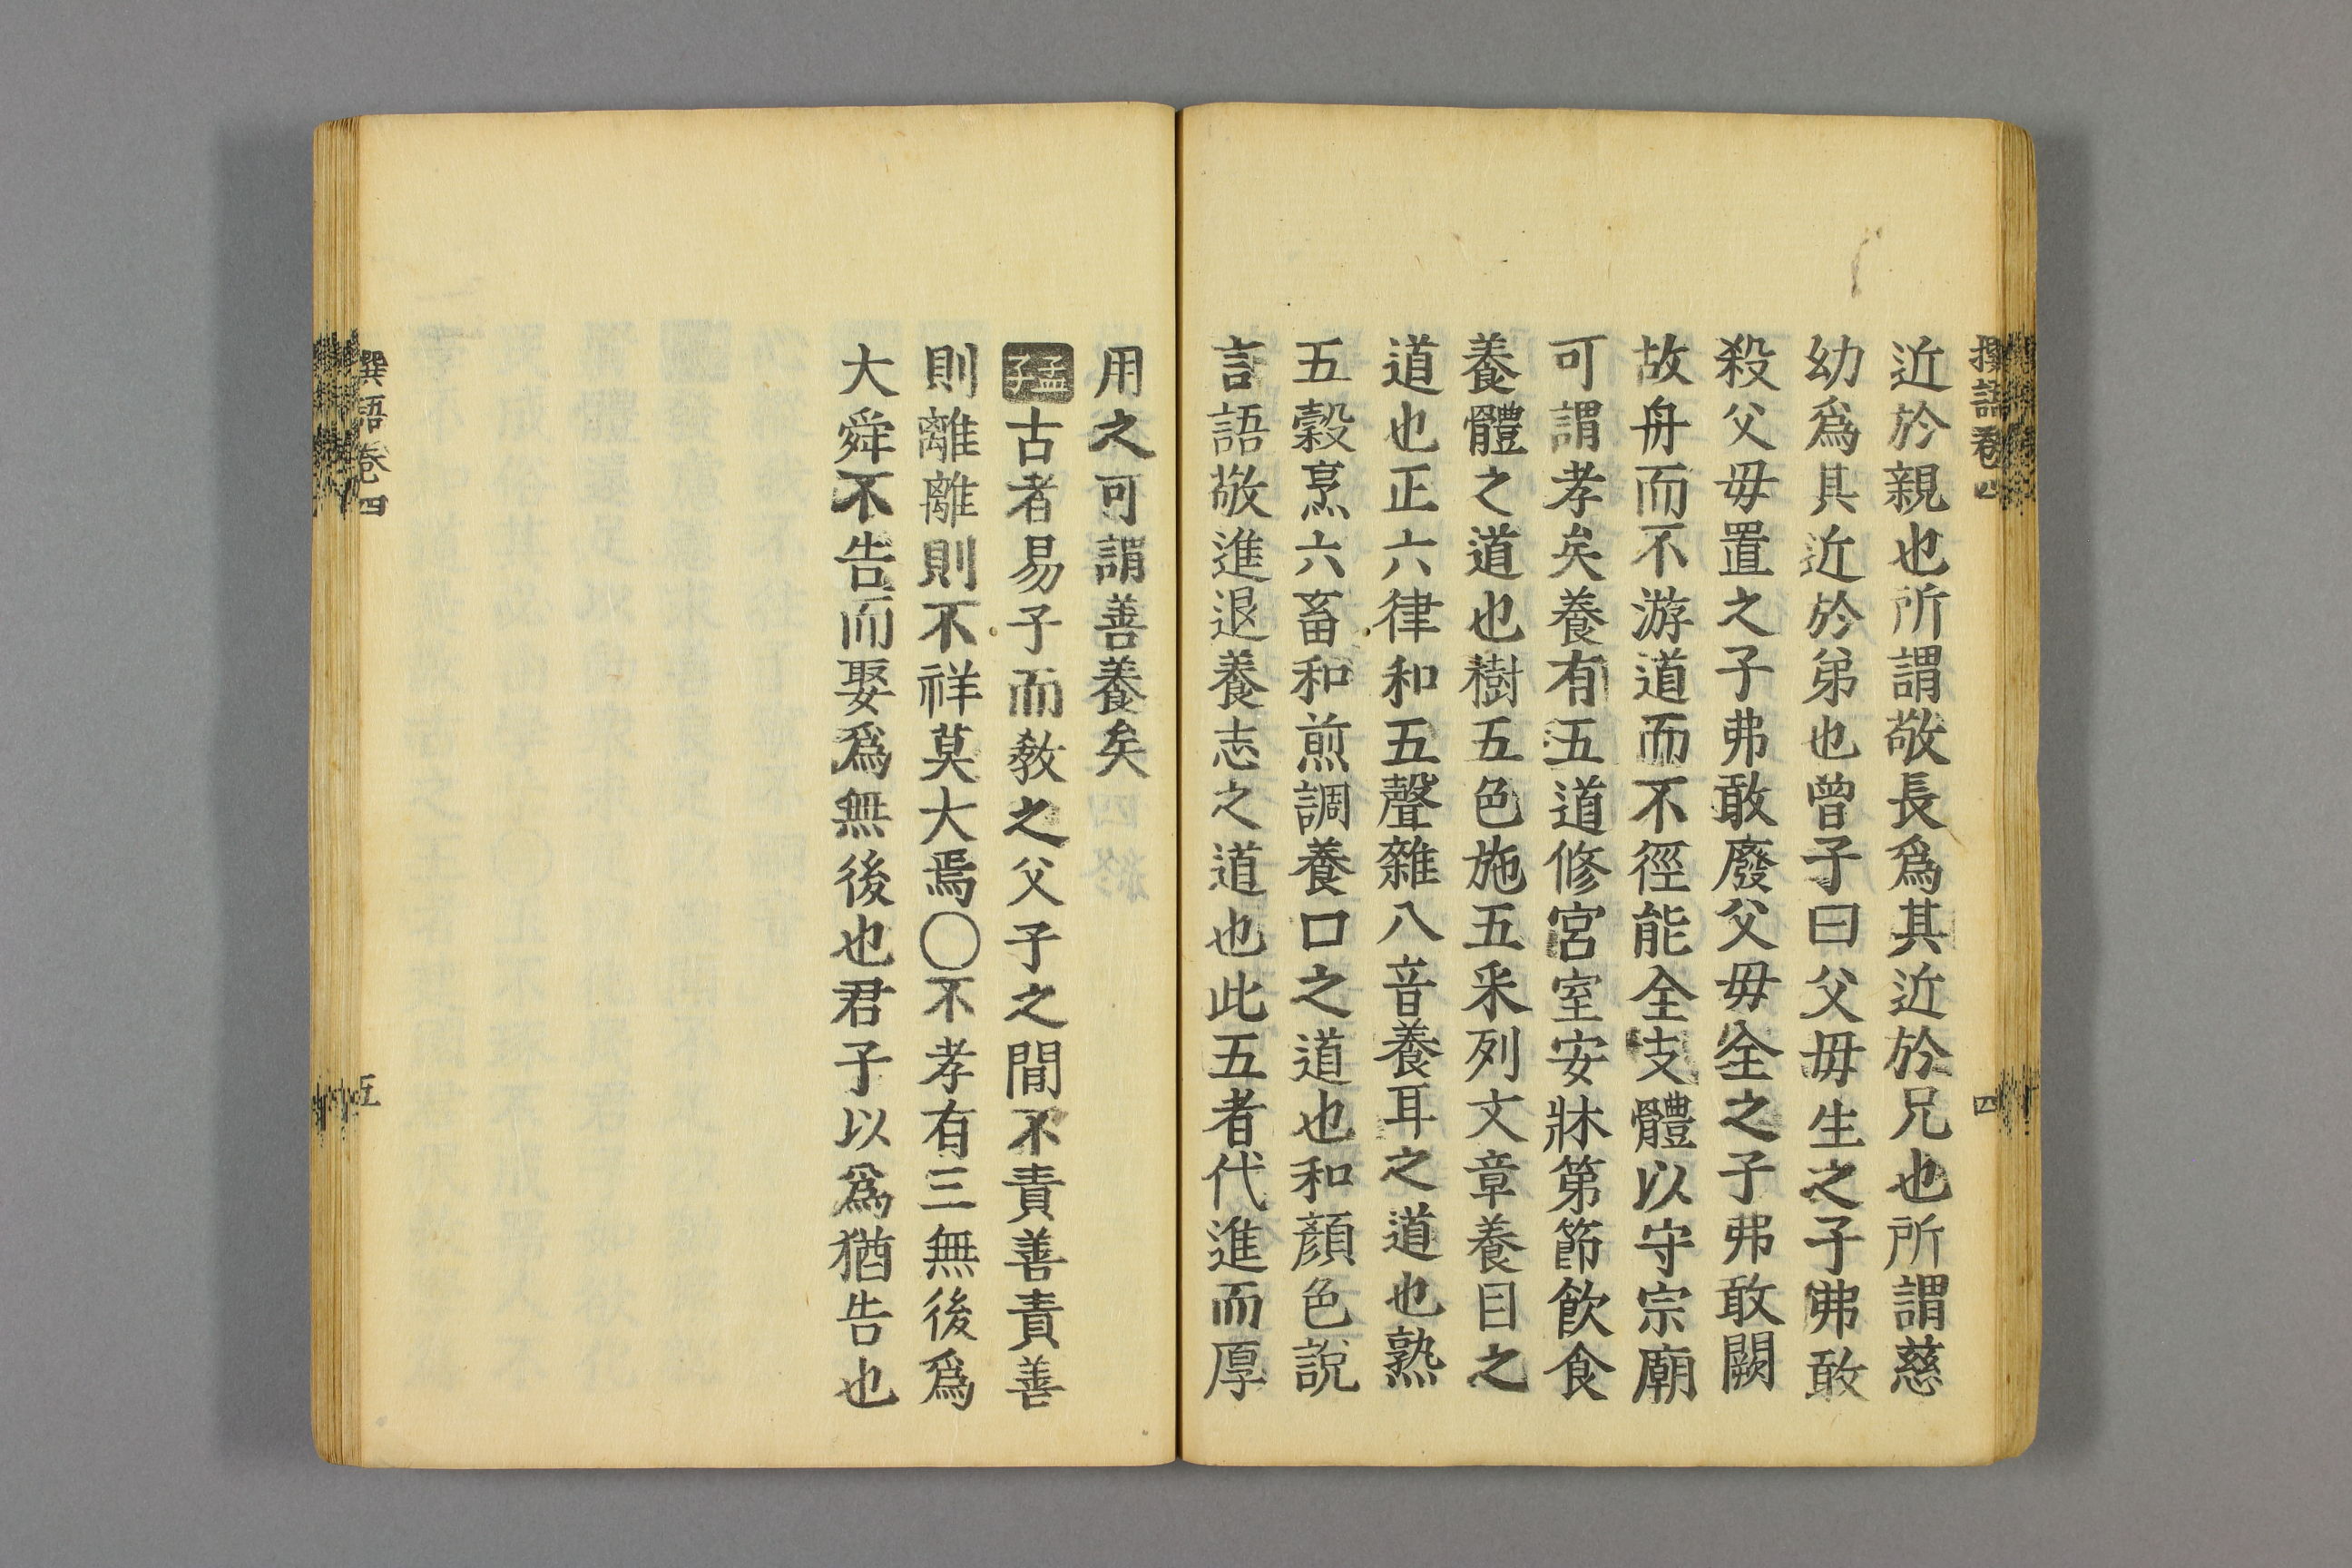 撰語卷四
四
近於親也所謂敬長爲其近於兄也所謂慈
幼爲其近於弟也曾子曰父毋生之子弗敢
殺父毋置之子弗敢廢父毋全之子弗敢闕
故舟而不游道而不徑能全支體以守宗廟
可謂孝矣養有五道修宮室安牀第節飲食
養體之道也樹五色施五采列文章養目之
道也正六律和五聲雜八音養耳之道也熟
五穀烹六畜和煎調養口之道也和顏色說
言語敬進退養志之道也此五者代進而厚
用之可謂善養矣
孟子古者易子而敎之父子之間不責善責善
則離離則不祥莫大焉〇不孝有三無後爲
大舜不告而娶爲無後也君子以爲猶告也
撰語卷四
五